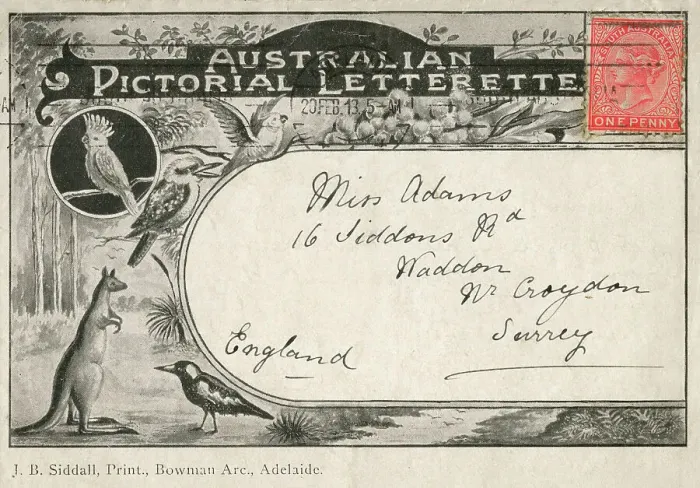 AUSTRALIAN
PICTORIAL LETTERETTE
SOUTH AUSTRALIA
ONE PENNY
20 FEB.13.5-AM
Miss Adams
16 Siddons Rd
Waddon
Nr Croydon
Surrey
England
J. B. Siddall, Print., Bowman Arc., Adelaide.